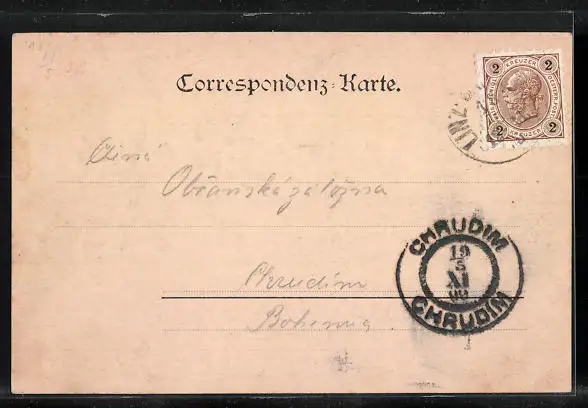 Correspondenz-Karte.
2 KREUZER 2
2 KREUZER 2
LINZ
Občanská záložna
CHRUDIM
19
5
XI
00
CHRUDIM
Chrudim
Bohemia